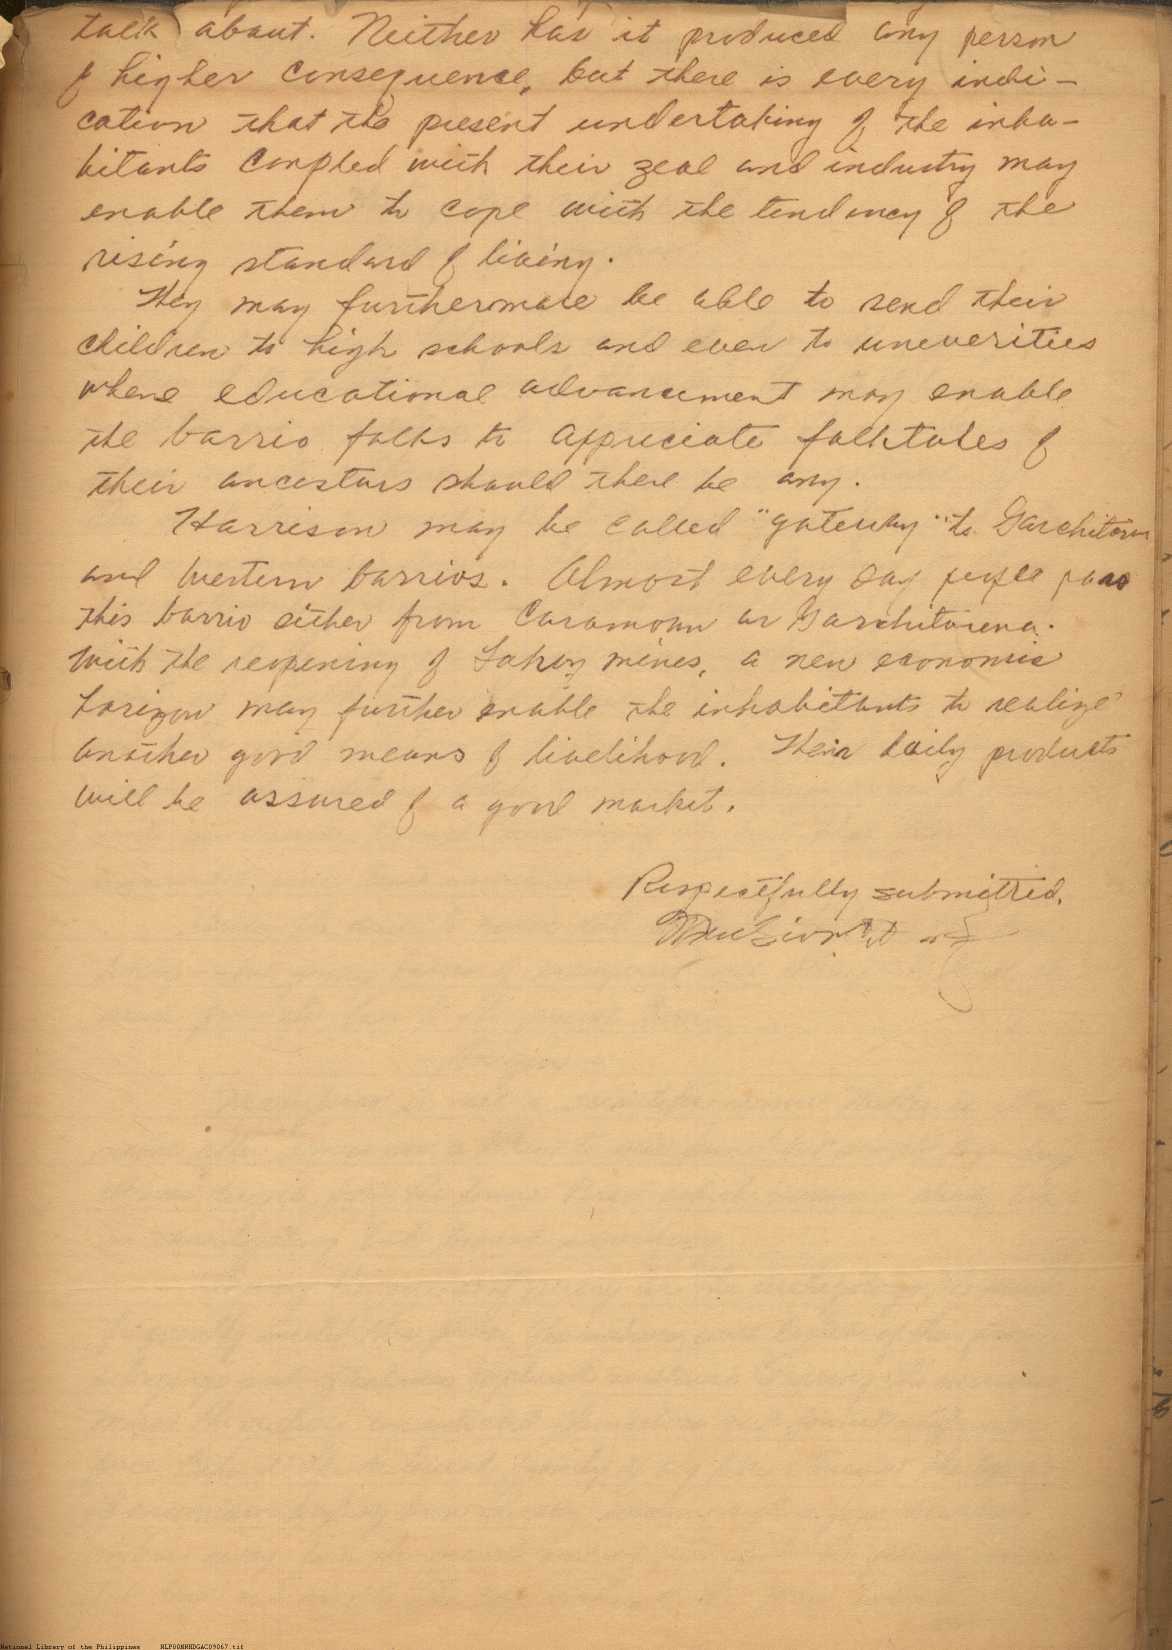 talk about. Neither has it produced any person
of higher consequence, but there is every indi-
cation that the present undertaking of the inha-
bitants coupled with their zeal and industry may
enable them to cope with the tendency of the
rising standard of living.
They may furthermore be able to send their
children to high schools and even to uneverities
where educational advancement may enable
the barrio folks to appreciate folktales of
their ancestors should there be any.
Harrison may be called "gateway" to Garchitorena
and western barrios. Almost every day people pass
this barrio either from Caramoan or Garchitorena.
With the reopening of mines, a new economic
horizon may further enable the inhabitants to realize
another good means of livelihood. Their daily products
will be assured of a good market.
Respectfully submitted,
National Library of the Philippines NLP00NRHDGAC09067.tif